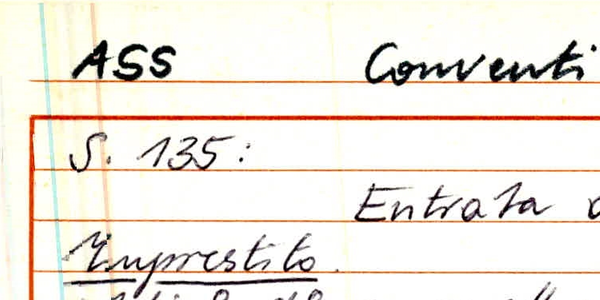 ASS Conventi
S. 135:
Entrata
Imprestito.